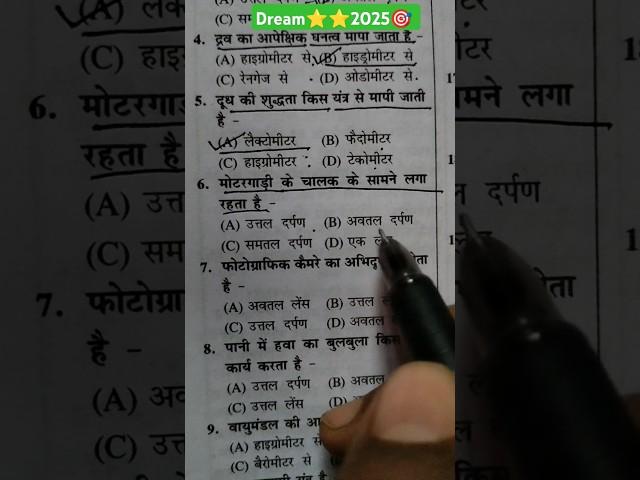 Dream⭐⭐2025🎯
4. द्रव का आपेक्षिक घनत्व मापा जाता है -
(A) हाइग्रोमीटर से (B) हाइड्रोमीटर से
(C) रेनगेज से (D) ओडोमीटर से
5. दूध की शुद्धता किस यंत्र से मापी जाती
है -
(A) लैक्टोमीटर (B) फैदोमीटर
(C) हाइग्रोमीटर (D) टेकोमीटर
6. मोटरगाड़ी के चालक के सामने लगा
रहता है -
(A) उत्तल दर्पण (B) अवतल दर्पण
(C) समतल दर्पण (D) एक
7. फोटोग्राफिक कैमरे का
है -
(A) अवतल लेंस (B) उत्तल
(C) उत्तल दर्पण (D) अवतल
8. पानी में हवा का बुलबुला किस
कार्य करता है -
(A) उत्तल दर्पण (B) अवतल
(C) उत्तल लेंस (D)
9. वायुमंडल की
(A) हाइग्रोमीटर से
(C) बैरोमीटर से